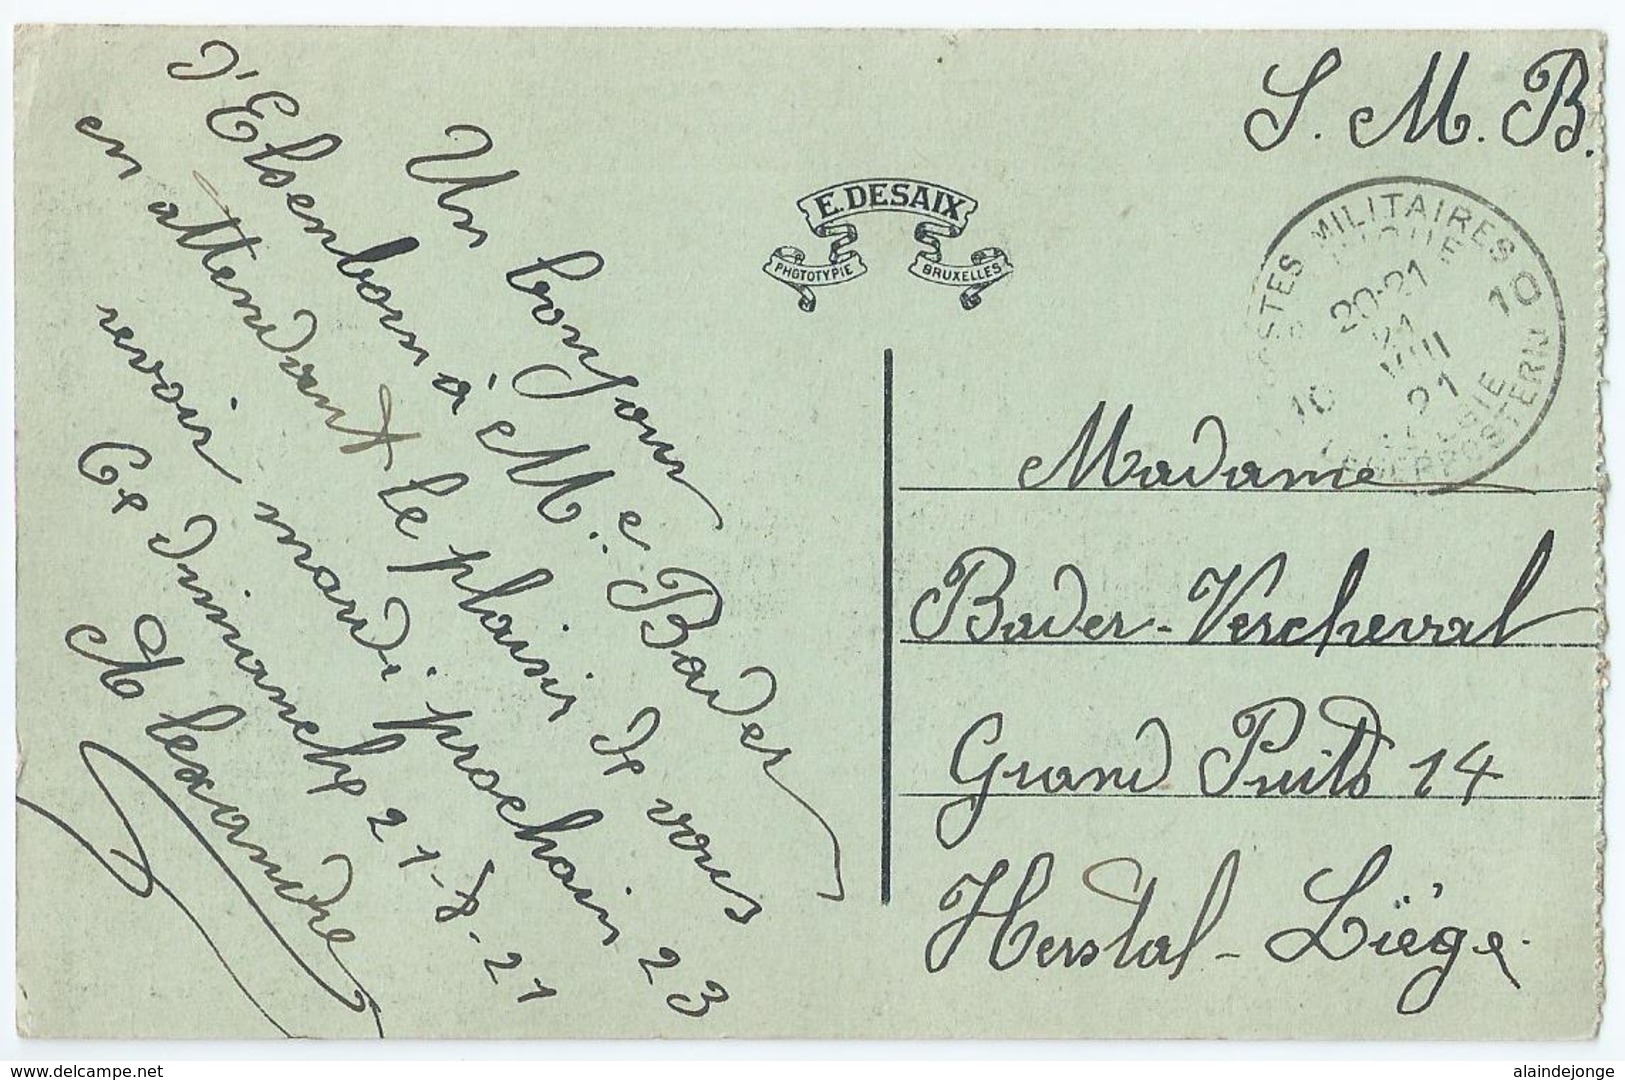 Un bonjour
d'Elsenborn à M.. e Bader
en attendant le plaisir de vous
revoir mardi prochain 23
Ce dimanche 21-8-21
Alexandre
E. DESAIX
PHOTOTYPIE BRUXELLES
S. M. B.
POSTES MILITAIRES
10 10
20-21
21
VIII
21
LEGERPOSTERIJ
Madame
Bader-Vercheval
Grand Puits 14
Herstal-Liège
delcampe.net
alaindejonge